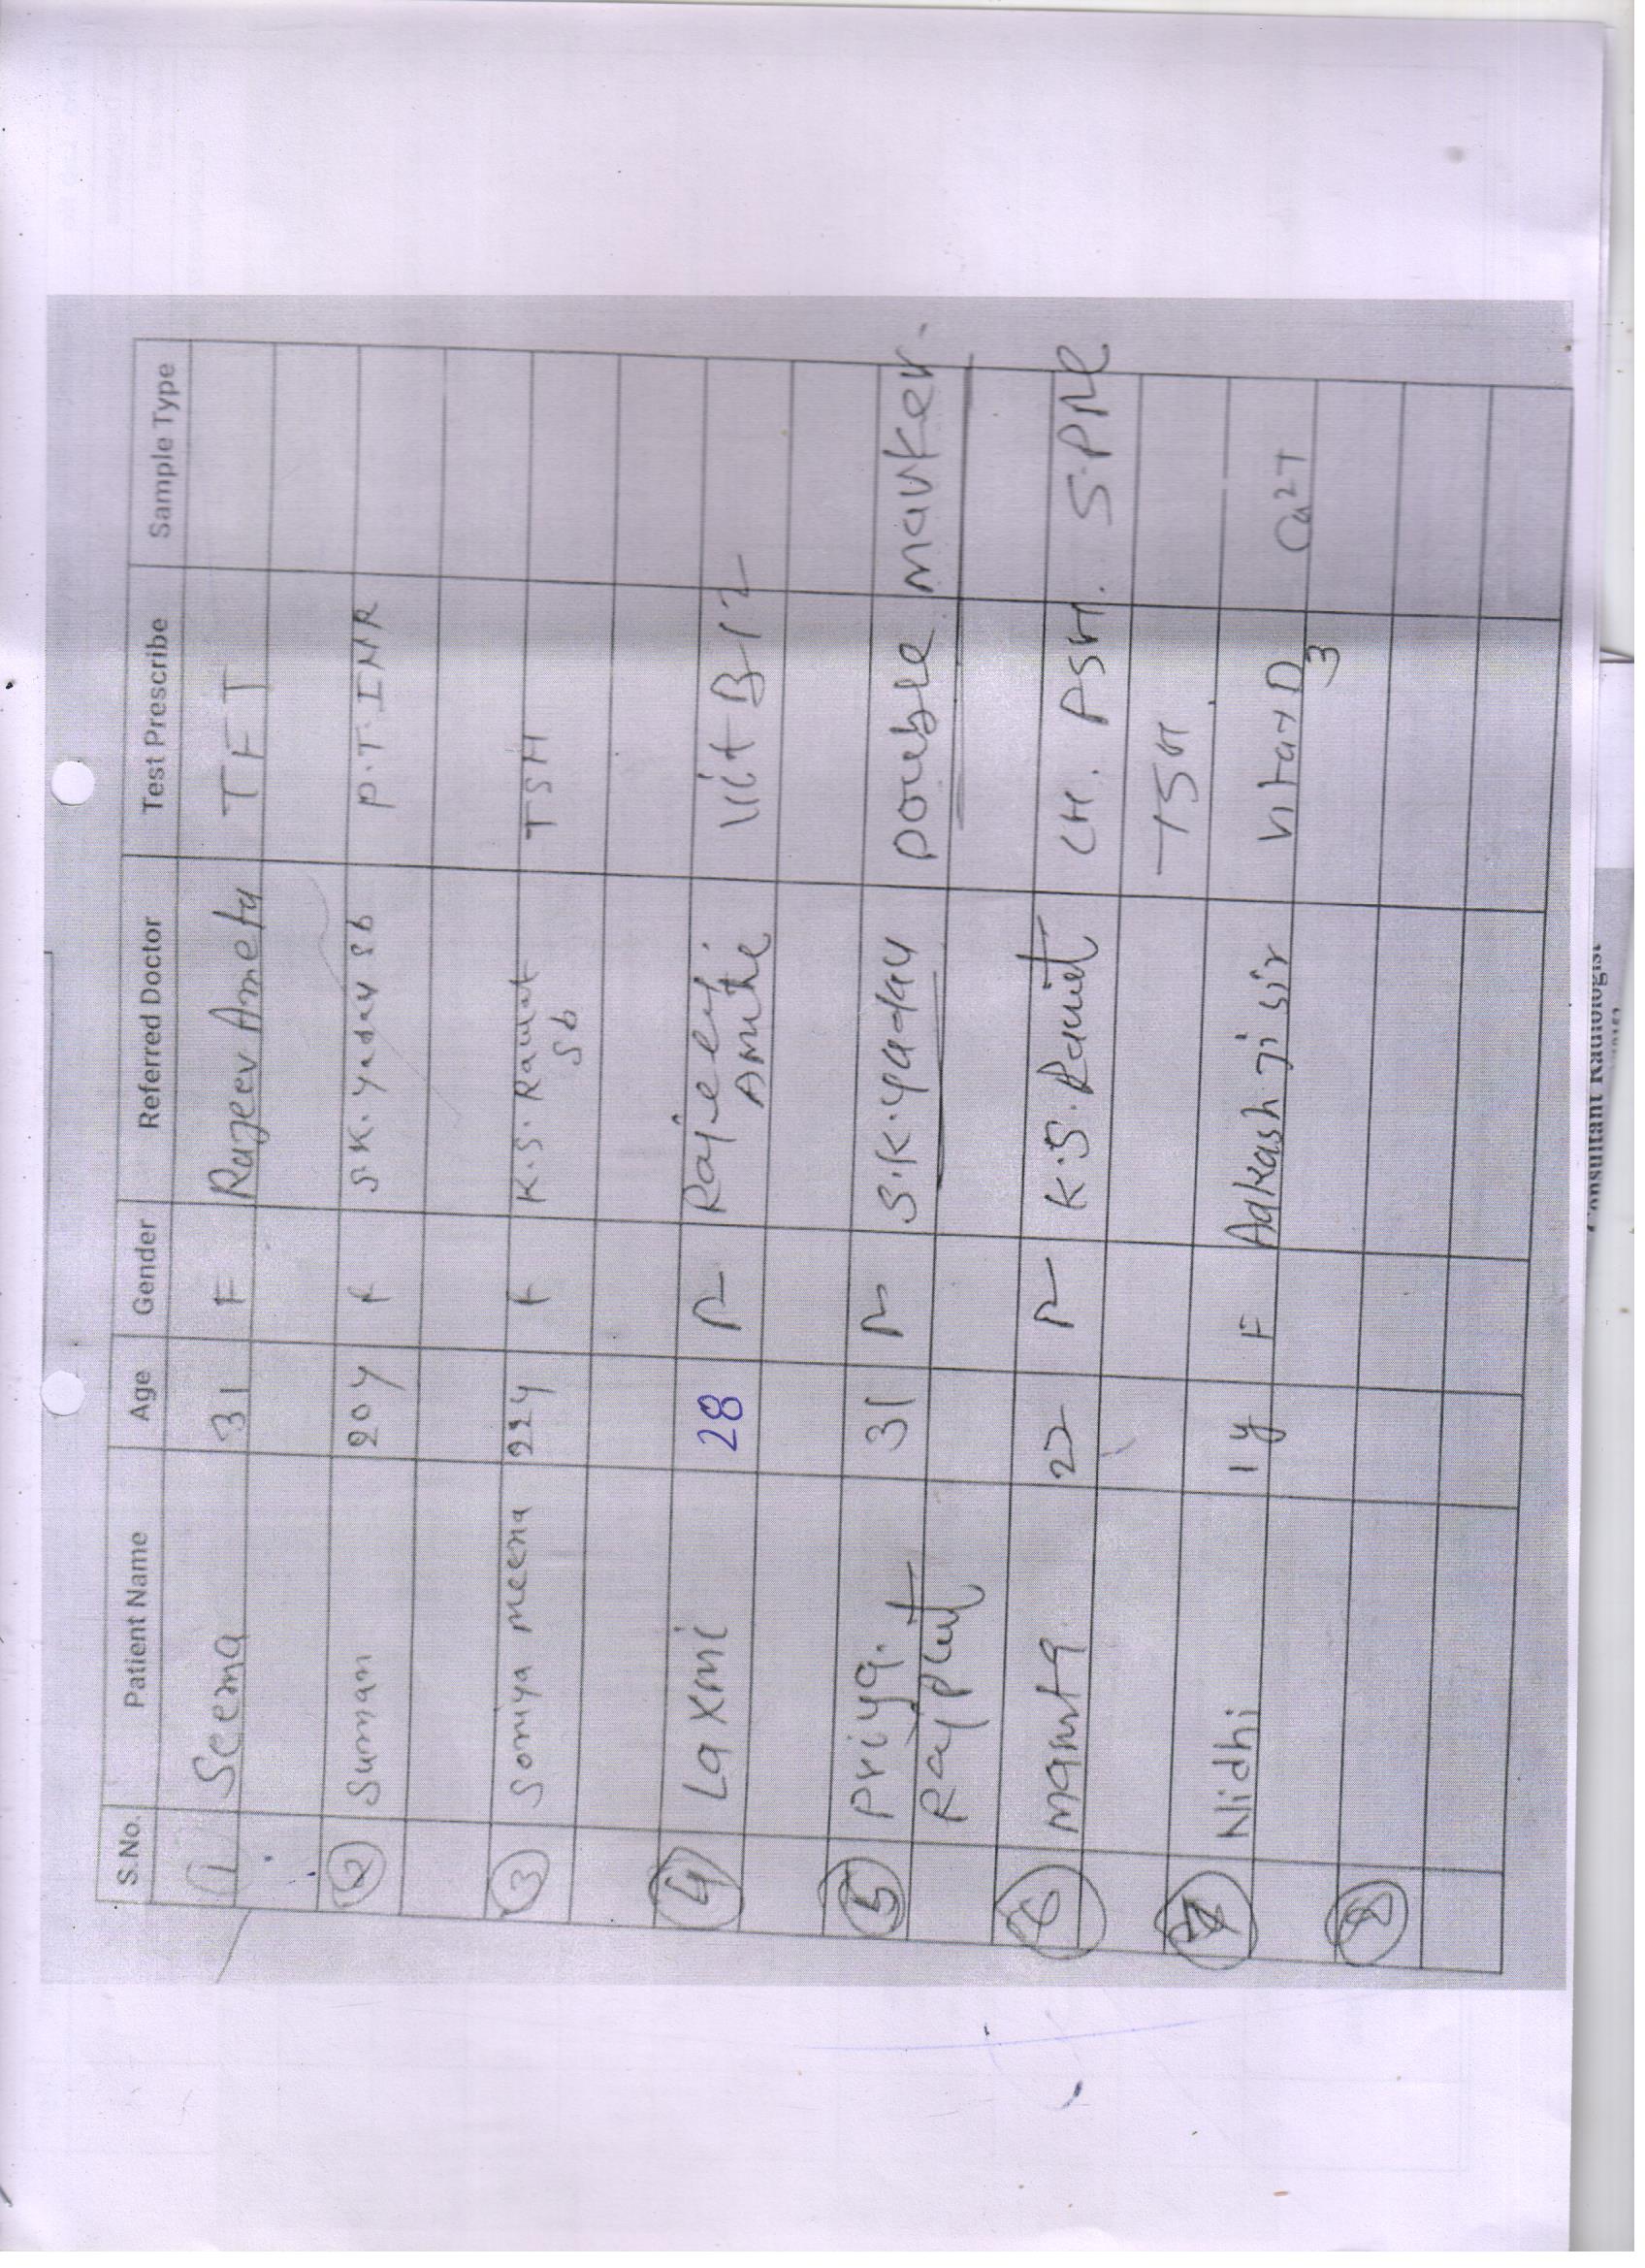 S.No. Patient Name Age Gender Referred Doctor Test Prescribe Sample Type
1 Seema 31 F Rajeev Ameta TFT
2 Suman 20y f S.K. Yadav Sb P.T. INR
3 Soniya Meena 22y f K.S. Rawat TSH
Sb
4 Laxmi 28 Rajeev Vit B12
5 Priya. 31 S.K. Yadav Double marker.
Rajput
6 Mamta 22 K.S. Rawat LH. S.PRL
TSH.
7 Nidhi 1y F Aakash ji sir Vita D3 Ca2+
8
Consultant Radiologist